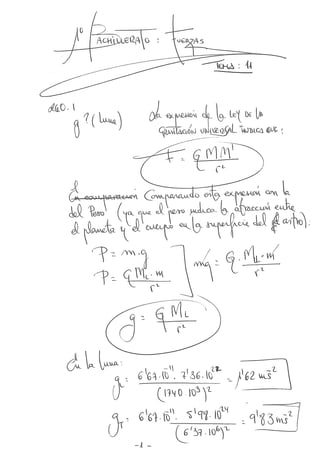 1º BACHILLERATO: FUERZAS
TEMA: 11
260.1
g? (Luna)
La expresión de la LEY DE LA
GRAVITACIÓN UNIVERSAL INDICA QUE:
F = G M M' / r²
En comparación Comparando esta expresión con la
del Peso (ya que el peso indica la atracción entre
el planeta y el cuerpo en la superficie del astro).
P = m·g
P = G M_L·m / r²
mg = G·M_L·m / r²
g = G M_L / r²
En la Luna:
g = 6'67·10⁻¹¹ · 7'36·10²² / (1740 10³)² = 1'62 ms⁻²
g_T = 6'67·10⁻¹¹ · 5'98·10²⁴ / (6'37·10⁶)² = 9'83 ms⁻²
-1-